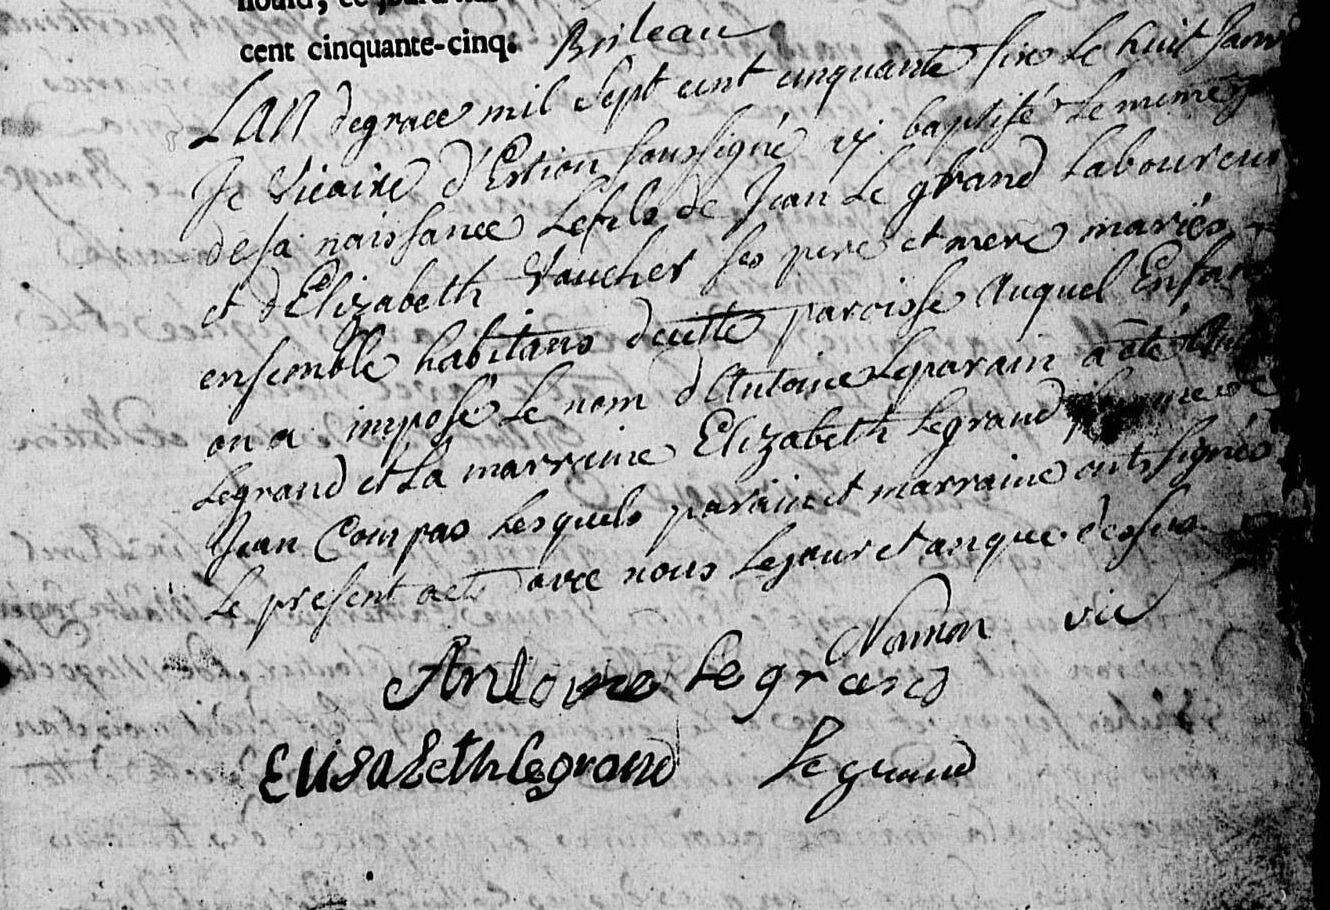 cent cinquante-cinq. Brileau
L'AN de grace mil Sept cent cinquante six Le huit Janvi
Je Vicaire d'Estion soussigné ay baptisé Le meme j
de sa naissance Le fils de Jean Le grand Laboureur
et d'Elizabeth Vaucher ses pere et mere mariés
ensemble habitans decette paroisse Auquel Enfant
on a imposé Le nom d'Antoine Le parain a été
Legrand et La marraine Elizabeth Legrand femme de
Jean Compas Lesquels parain et marraine ont signés
Le present acte avec nous Le jour et an que dessus
Namon vic
Antoine Le grand
Elisabeth Legrand Le grand